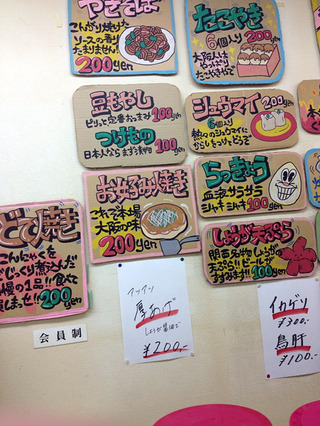 やきそば
こんがり焼けた
ソースの香り
たまりません
200yen
たこやき
6個入り 200yen
大阪人は
やっぱり
たこやきでっせ
豆もやし 100yen
ピリッと定番おつまみ
つけもの 100yen
日本人ならまず漬物
シュウマイ 200yen
6個入り
熱々のシュウマイに
からしをつけてどうぞ
お好み焼き
これぞ本場
大阪の味
200yen
らっきょう
血液サラサラ
シャキシャキ 100yen
しょうが天ぷら
関西名物しょうが
天ぷら!!ビールが
すすみます!! 100yen
どて焼き
こんにゃくを
じっくり煮込んだ
自慢の1品!!食べて
200yen
会員制
アツアツ
厚あげ
しょうが醤油で
¥200.-
イカゲソ
¥300.-
鳥肝
¥100.-